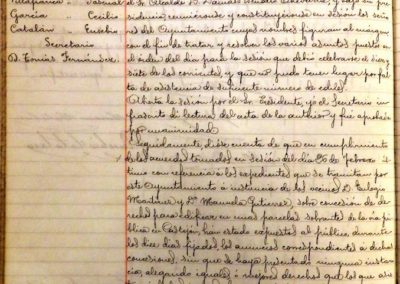 Villafranca " Pascual
García " Cecilio
Catalán " Eusebio
Secretario
D. Tomás Fernández.
el Sr. Alcalde D. y bajo su pre-
sidencia, reuniéndose y constituyéndose en sesión los seño-
res del Ayuntamiento cuyos nombres figuran al margen
con el fin de tratar y resolver los varios asuntos puestos en
el orden del día para la sesión que debió celebrarse el diez y
siete de los corrientes, y que no pudo tener lugar por fal-
ta de asistencia de suficiente número de ediles.
Abierta la sesión por el Sr. Presidente, yo el Secretario in-
frascrito di lectura del acta de la anterior y fue aprobada
por unanimidad.
Seguidamente, dióse cuenta de que en cumplimiento
de los acuerdos tomados en sesión del día 26 de febrero úl-
timo con referencia a los expedientes que se tramitan por
este Ayuntamiento á instancia de los vecinos D. Eulogio
Martínez y Dª Manuela Gutierrez, sobre concesión de de-
rechos para edificar en unas parcelas sobrantes de la vía pú-
blica en Castejón, han estado expuestos al público, durante
los diez días fijados, los anuncios correspondientes á dichas
concesiones, sin que se haya presentado ninguna instan-
cia, alegando iguales ó mejores derechos que los que asis-